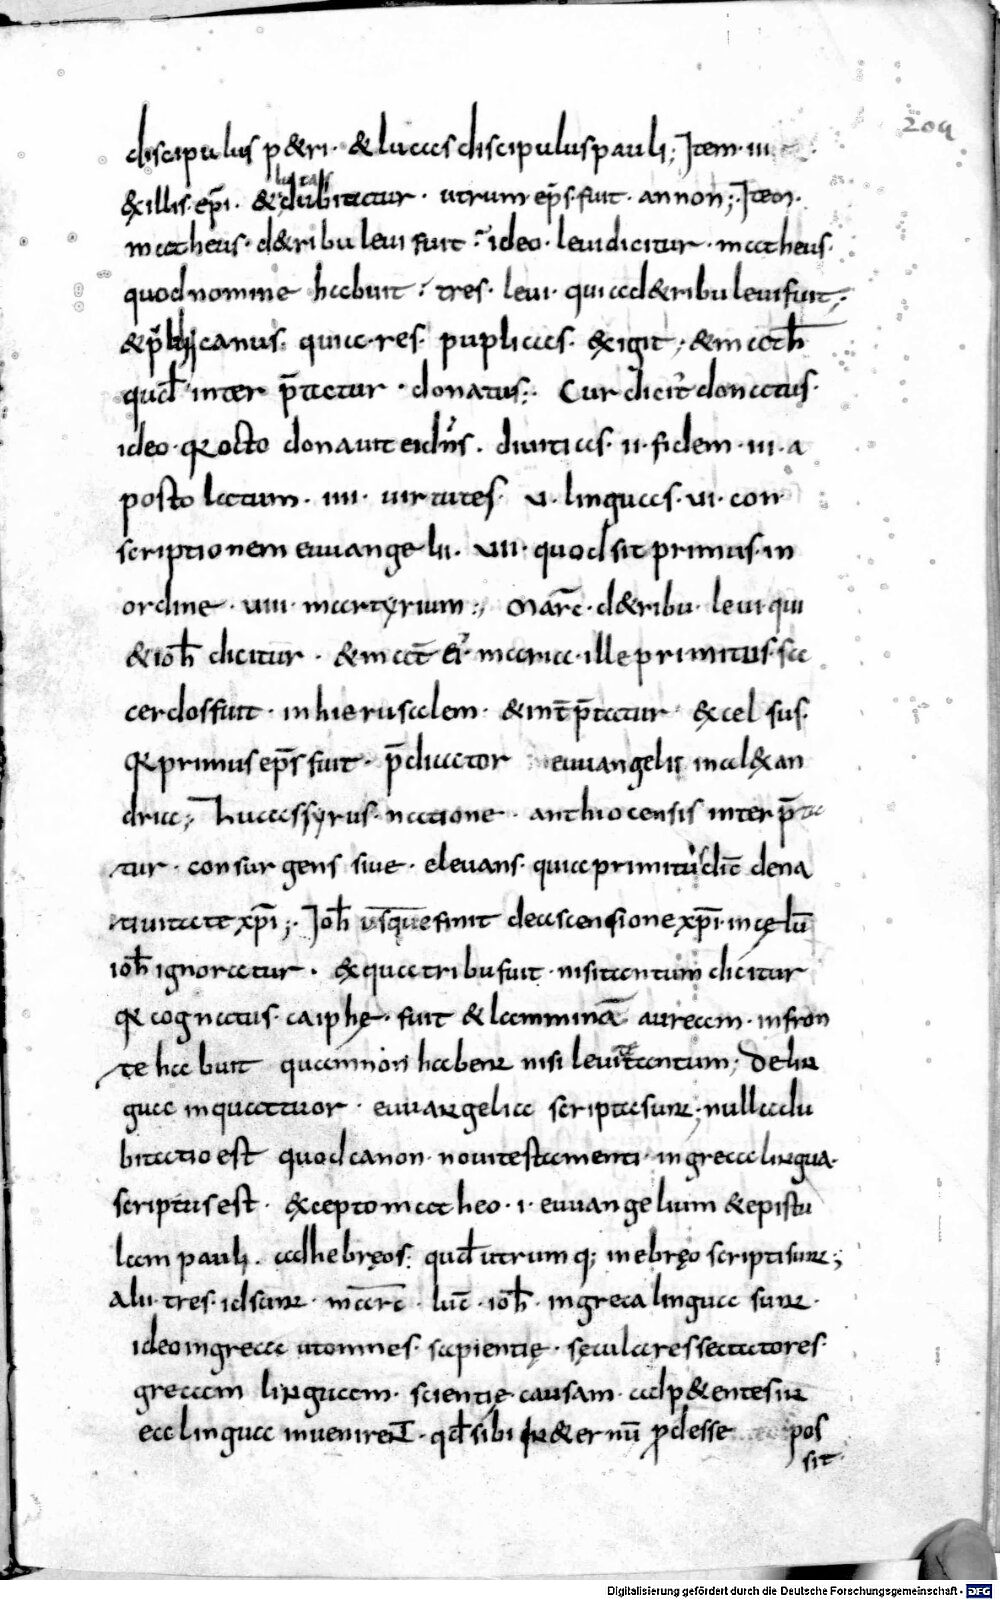 204
discipulus p&ri · & lucas discipulus pauli; Item · iii
&illis · ep̄i · & dubitatur · utrum ep̄s · fuit · an non; Item ·
matheus · d&ribu leui fuit · ideo · leui dicitur · matheus ·
quod nomine habuit · tres · leui · qui ad &ribu leui fuit;
& canus · quia · res · puplicas · exigit · & math̄
qud̄ inter p̄tatur · donatus · Cur dicit donatus ·
ideo · qr octo donauit ei dn̄s · diuitias · ii · fidem · iii · a
postolatum · iiii · uirtutes · v · linguas · vi · con
scriptionem euuangelii · vii · quod sit primus · in
ordine · viii · martyrium · Marc̄ · d&ribu · leui qui
& ioh̄ dicitur · & mat̄ maria · ille primitus · sa
cerdos fuit · in hierusalem · & int̄ p̄tatur excelsus ·
qr primus ep̄s fuit · p̄dicator euuangelii in alexan
dria; Lucas syrus · natione · anthiocensis inter p̄ta
tur · consurgens siue · eleuans · quia primitus dic̄ dena
tiuitate xp̄i; Ioh̄ usque finit de ascensione xp̄i · in cęlū
ioh̄ ignoratur · ex qua tribu fuit · nisi tantum dicitur
qr cognatus · caiphę · fuit & lamminā auream · in fron
te habuit quam non haben̄ nisi leui tantum; De lin
gua in qua quattuor · euuangelia scripta sunt; nulla du
bitatio est quod canon · noui testamenti · in greca lingua ·
scriptus est · excepto matheo · i · euuangelium & epistu
lam pauli · ad hebręos · qud̄ utrum q; in ebręo scripti sunt;
alii · tres · id sunt · marc̄ · luc̄ · ioh̄ · in greca lingua sunt ·
ideo in greca ut omnes · sapientię · sęculares sectatores ·
grecam linguam · scientię causam · adp&entes in
ea lingua inuenirent · qd̄ sibi in &ernū p̄desse pos
sit ·
Digitalisierung gefördert durch die Deutsche Forschungsgemeinschaft · DFG